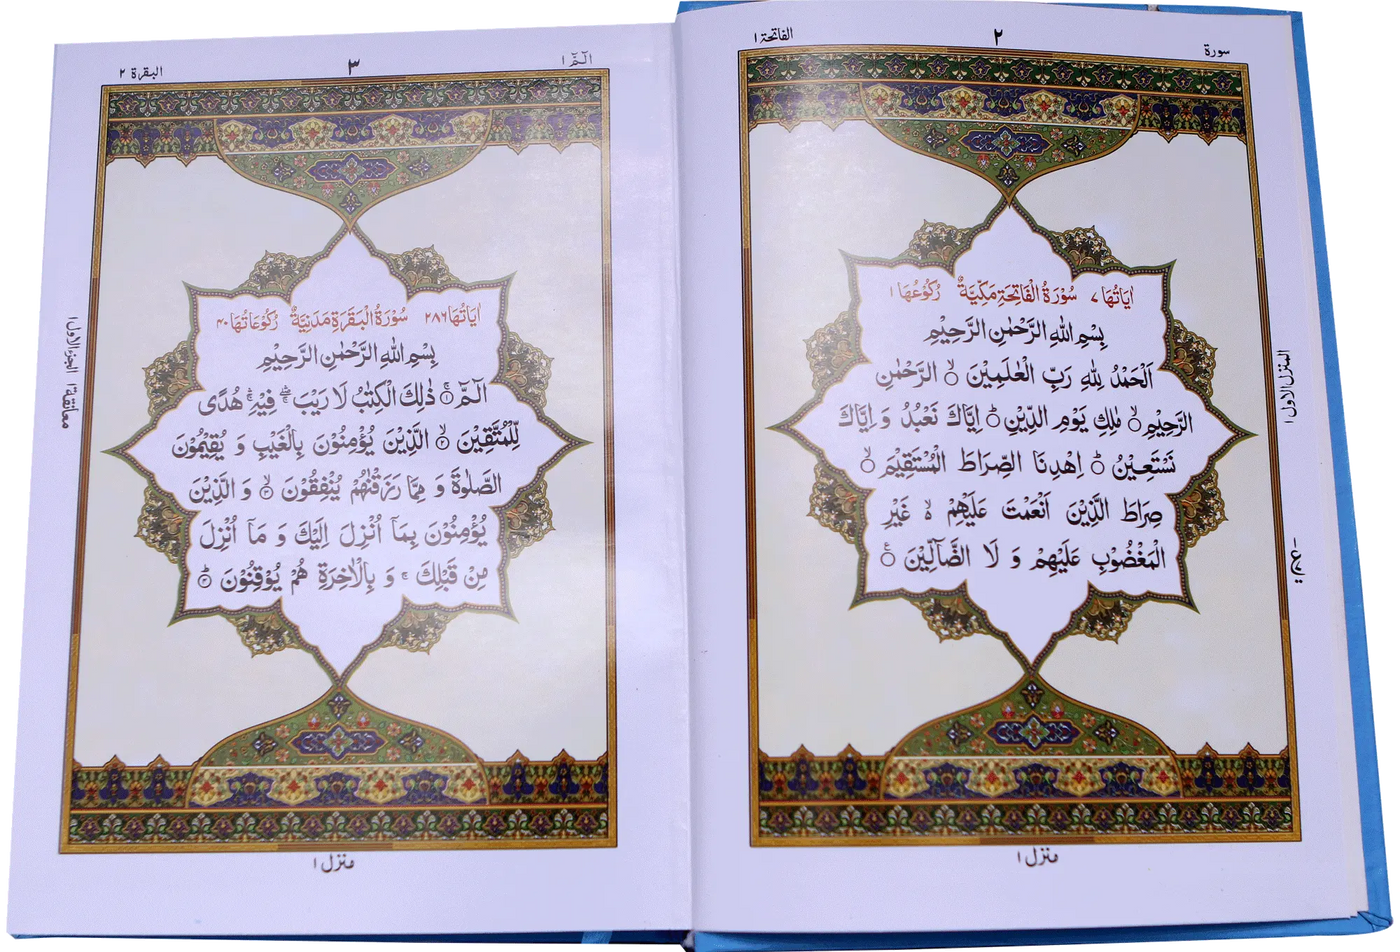 سورة
٢
الفاتحة ١
اٰيَاتُهَا ٧ سُوْرَةُ الْفَاتِحَةِ مَكِّيَّةٌ رُكُوْعُهَا ١
بِسْمِ اللّٰهِ الرَّحْمٰنِ الرَّحِيْمِ
اَلْحَمْدُ لِلّٰهِ رَبِّ الْعٰلَمِيْنَ ۙ الرَّحْمٰنِ
الرَّحِيْمِ ۙ مٰلِكِ يَوْمِ الدِّيْنِ ؕ اِيَّاكَ نَعْبُدُ وَ اِيَّاكَ
نَسْتَعِيْنُ ؕ اِهْدِنَا الصِّرَاطَ الْمُسْتَقِيْمَ ۙ
صِرَاطَ الَّذِيْنَ اَنْعَمْتَ عَلَيْهِمْ ۙ غَيْرِ
الْمَغْضُوْبِ عَلَيْهِمْ وَ لَا الضَّآلِّيْنَ
المنزل الاول ١
منزل ١
الٓمّٓ ١
٣
البقرة ٢
اٰيَاتُهَا ٢٨٦ سُوْرَةُ الْبَقَرَةِ مَدَنِيَّةٌ رُكُوْعَاتُهَا ٤٠
بِسْمِ اللّٰهِ الرَّحْمٰنِ الرَّحِيْمِ
الٓمّٓ ۚ ١ ذٰلِكَ الْكِتٰبُ لَا رَيْبَ ۛ فِيْهِ ۛ هُدًى
لِّلْمُتَّقِيْنَ ۙ ٢ الَّذِيْنَ يُؤْمِنُوْنَ بِالْغَيْبِ وَ يُقِيْمُوْنَ
الصَّلٰوةَ وَ مِمَّا رَزَقْنٰهُمْ يُنْفِقُوْنَ ۙ ٣ وَ الَّذِيْنَ
يُؤْمِنُوْنَ بِمَآ اُنْزِلَ اِلَيْكَ وَ مَآ اُنْزِلَ
مِنْ قَبْلِكَ ۚ وَ بِالْاٰخِرَةِ هُمْ يُوْقِنُوْنَ ؕ ٤
معانقة ١ الجزء الاول ١
منزل ١